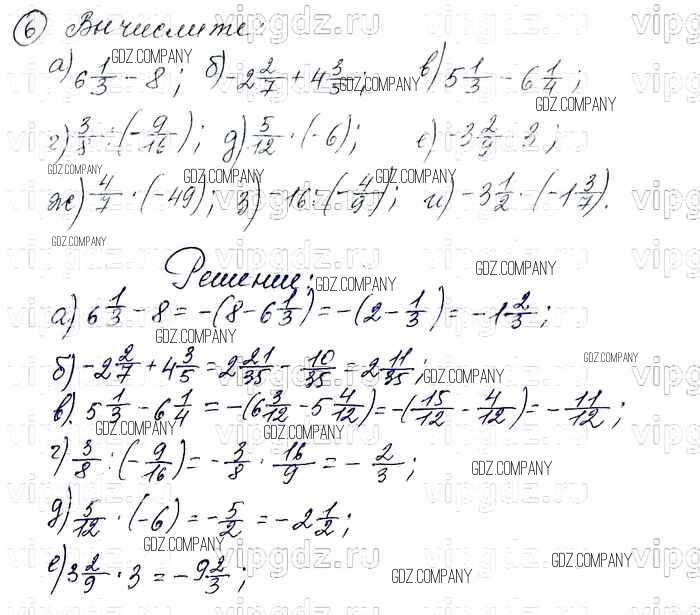 6 Вычислите:
а) 6 1/3 - 8; б) -2 2/7 + 4 3/5; в) 5 1/3 - 6 1/4;
г) 3/8 : (-9/16); д) 5/12 · (-6); е) -3 2/9 · 3;
ж) 4/7 · (-49); з) -16 : (-4/9); и) -3 1/2 · (-1 3/7).
Решение:
а) 6 1/3 - 8 = -(8 - 6 1/3) = -(2 - 1/3) = -1 2/3;
б) -2 2/7 + 4 3/5 = 2 21/35 - 10/35 = 2 11/35;
в) 5 1/3 - 6 1/4 = -(6 3/12 - 5 4/12) = -(15/12 - 4/12) = -11/12;
г) 3/8 : (-9/16) = -3/8 · 16/9 = -2/3;
д) 5/12 · (-6) = -5/2 = -2 1/2;
е) 3 2/9 · 3 = -9 2/3;
GDZ.COMPANY
vipgdz.ru